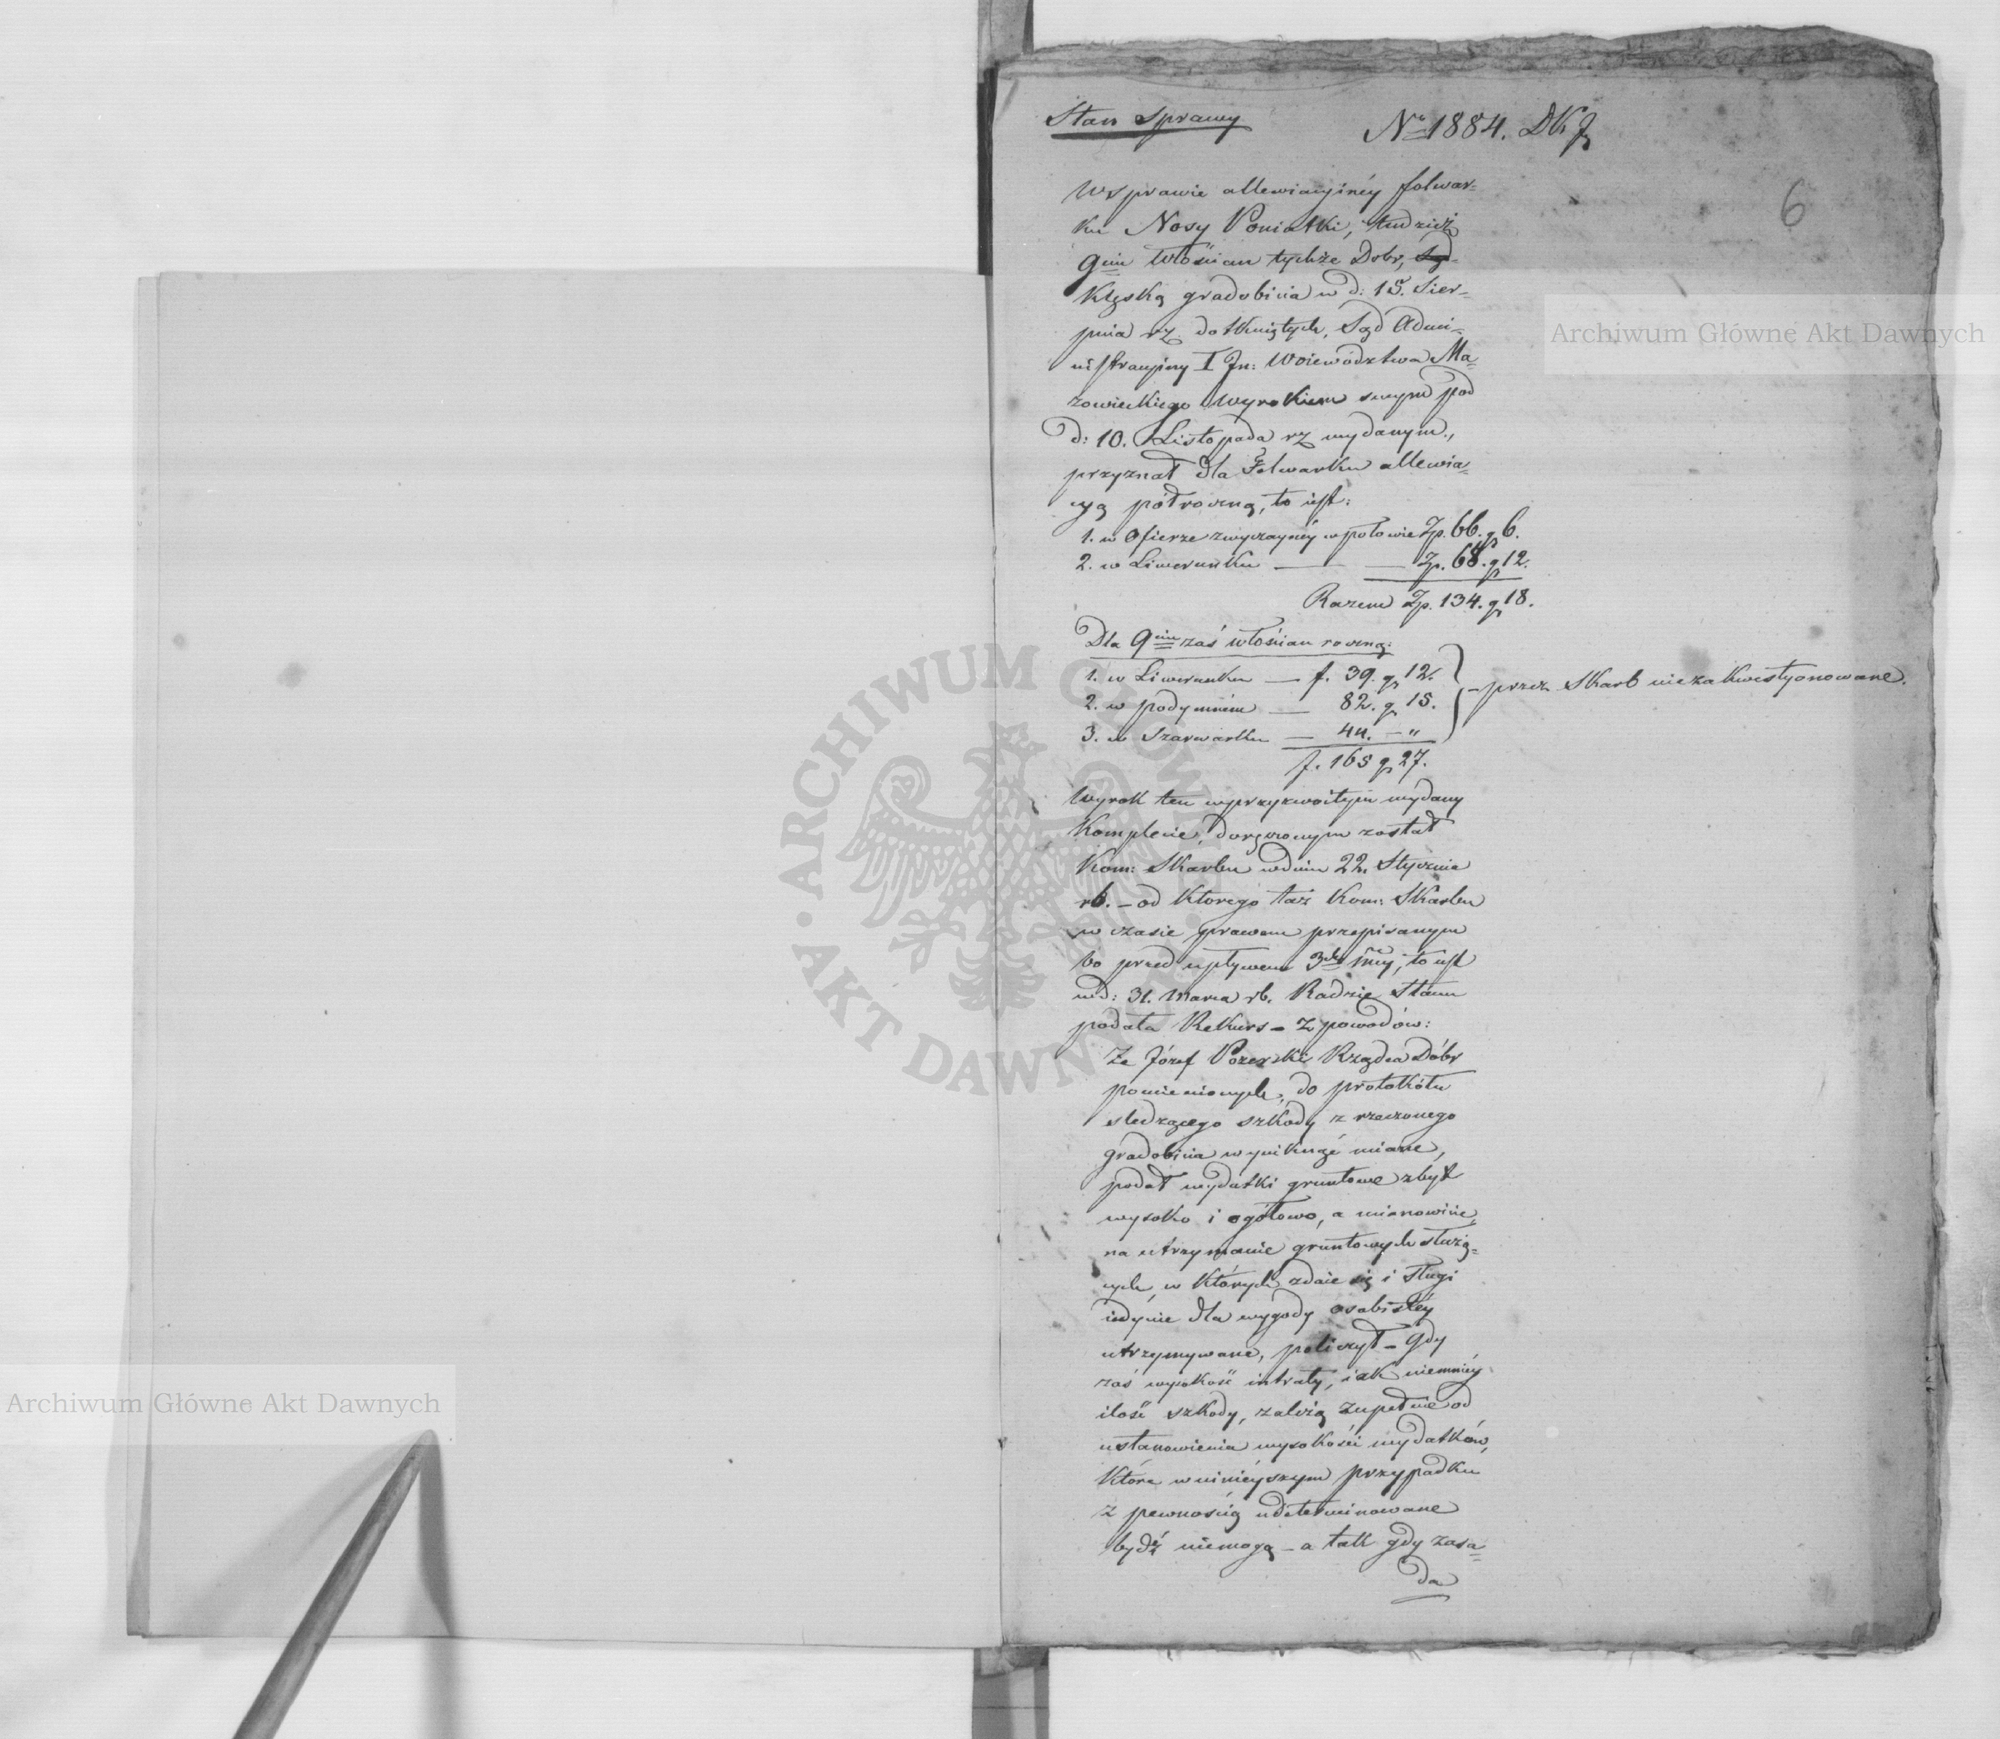 Stan sprawy
No 1884. DKJ
6
W sprawie allewiacyinéy folwar=
ku Nosy Poniatki, tudzież
9ciu Włościan tychże Dóbr,
Klęską gradobicia w d: 15. Sier=
pnia rz. dotkniętych, Sąd Admi=
nistracyiny I In: Woiewództwa Ma=
zowieckiego Wyrokiem swym pod
d: 10. Listopada rz wydanym,
przyznał dla Folwarku allewia=
cyą półroczną, to iest:
1. w Ofierze zwyczaynéy w połowie Zp. 66. g 6.
2. w Liwerunku — — Zp. 68. g 12.
Razem Zp. 134. g 18.
Dla 9ciu zaś włościan roczną:
1. w Liwerunku — f. 39. g 12.
2. w podymném — 82. g 15.
3. w Szarwarku — 44. — "
f. 165 g 27.
przez Skarb niezakwestyonowane.
Wyrok ten w przyzwoitym wydany
Komplecie, doręczonym został
Kom: Skarbu w dniu 22. Stycznia
rb. – od którego taż Kom: Skarbu
w czasie prawem przepisanym
bo przed upływem 3ch mcy, to iest
w d: 31. Marca rb. Radzie Stanu
podała Rekurs – z powodów:
Że Józef Pozerski Rządca Dóbr
pomienionych, do protokółu
śledzącego szkody z rzeczonego
gradobicia wyniknąć miane,
podał wydatki gruntowe zbyt
wysoko i ogółowo, a mianowicie
na utrzymanie gruntowych służą=
cych, w których zdaie się i sługi
iedynie dla wygody osobistéy
utrzymywane, policzył – Gdy
zaś wysokość intraty, iak niemniéy
ilość szkody, zależą zupełnie od
ustanowienia wysokości wydatków,
które w ninieyszym przypadku
z pewnością udeterminowane
bydź niemogą – a tak gdy zasa=
da
Archiwum Główne Akt Dawnych
Archiwum Główne Akt Dawnych
ARCHIWUM GŁÓWNE AKT DAWNYCH